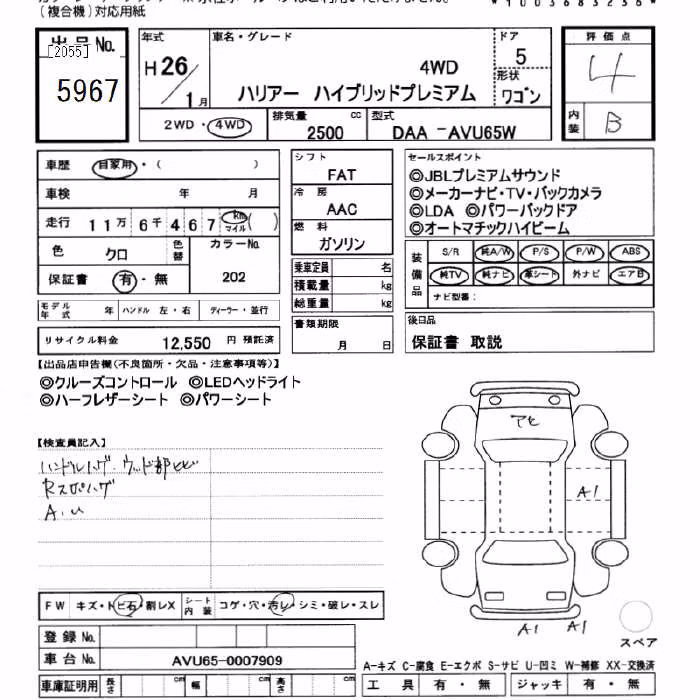 (複合機)対応用紙
*1003683236*
出品No.
[2055]
5967
年式
H26/1月
車名・グレード
4WD
ハリアー ハイブリッドプレミアム
ドア
5
形状
ワゴン
評価点
4
内装
B
2WD・4WD
排気量
2500
cc
型式
DAA -AVU65W
車歴 自家用・( )
車検 年 月
走行 11万6千467 km マイル( )
色 クロ
色替
カラーNo.
202
保証書 有・無
シフト
FAT
冷房
AAC
燃料
ガソリン
乗車定員 名
積載量 kg
総重量 kg
セールスポイント
◎JBLプレミアムサウンド
◎メーカーナビ・TV・バックカメラ
◎LDA ◎パワーバックドア
◎オートマチックハイビーム
装備品
S/R 純A/W P/S P/W ABS
純TV 純ナビ 革シート 外ナビ エアB
ナビ型番:
モデル年式 年 ハンドル 左・右 ディーラー・並行
リサイクル料金 12,550 円 預託済
書類期限
月 日
後日品
保証書 取説
【出品店申告欄(不良箇所・欠品・注意事項等)】
◎クルーズコントロール ◎LEDヘッドライト
◎ハーフレザーシート ◎パワーシート
【検査員記入】
ハンドルハゲ・ウッド部ヒビ
Rスポハゲ
A.U
アヒ
A1
A1 A1
スペア
FW キズ・トビ石・割レX
シート内装 コゲ・穴・汚レ・シミ・破レ・スレ
登録No.
車台No. AVU65-0007909
車庫証明用 長さ cm 幅 cm 高さ cm
A-キズ C-腐食 E-エクボ S-サビ U-凹ミ W-補修 XX-交換済
工具 有・無 ジャッキ 有・無